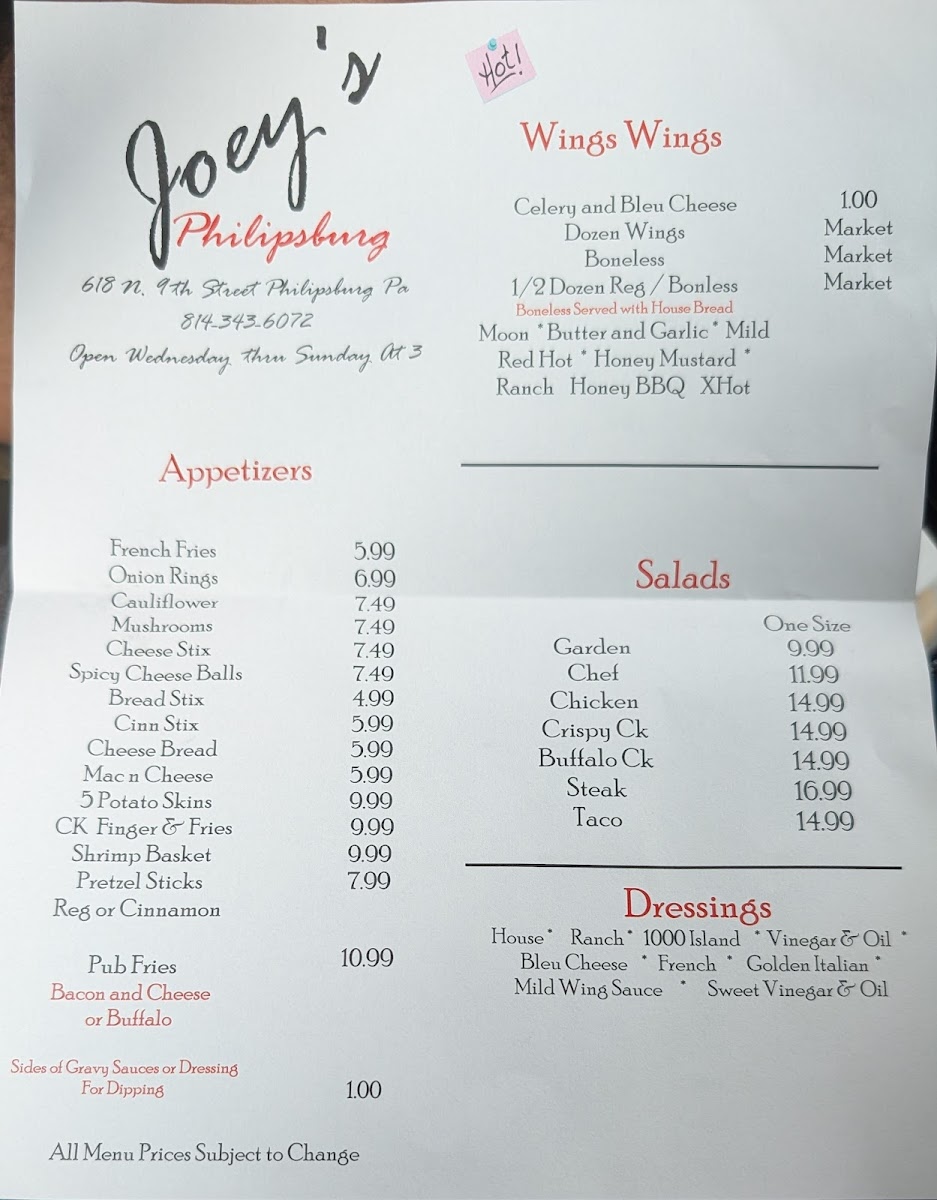 Joey's
Philipsburg
618 N. 9th Street Philipsburg Pa
814-343-6072
Open Wednesday thru Sunday At 3
Appetizers
French Fries 5.99
Onion Rings 6.99
Cauliflower 7.49
Mushrooms 7.49
Cheese Stix 7.49
Spicy Cheese Balls 7.49
Bread Stix 4.99
Cinn Stix 5.99
Cheese Bread 5.99
Mac n Cheese 5.99
5 Potato Skins 9.99
CK Finger & Fries 9.99
Shrimp Basket 9.99
Pretzel Sticks 7.99
Reg or Cinnamon
Pub Fries 10.99
Bacon and Cheese
or Buffalo
Sides of Gravy Sauces or Dressing
For Dipping 1.00
All Menu Prices Subject to Change
Hot!
Wings Wings
Celery and Bleu Cheese 1.00
Dozen Wings Market
Boneless Market
1/2 Dozen Reg / Bonless Market
Boneless Served with House Bread
Moon * Butter and Garlic * Mild
Red Hot * Honey Mustard *
Ranch Honey BBQ XHot
Salads
One Size
Garden 9.99
Chef 11.99
Chicken 14.99
Crispy Ck 14.99
Buffalo Ck 14.99
Steak 16.99
Taco 14.99
Dressings
House * Ranch * 1000 Island * Vinegar & Oil *
Bleu Cheese * French * Golden Italian *
Mild Wing Sauce * Sweet Vinegar & Oil